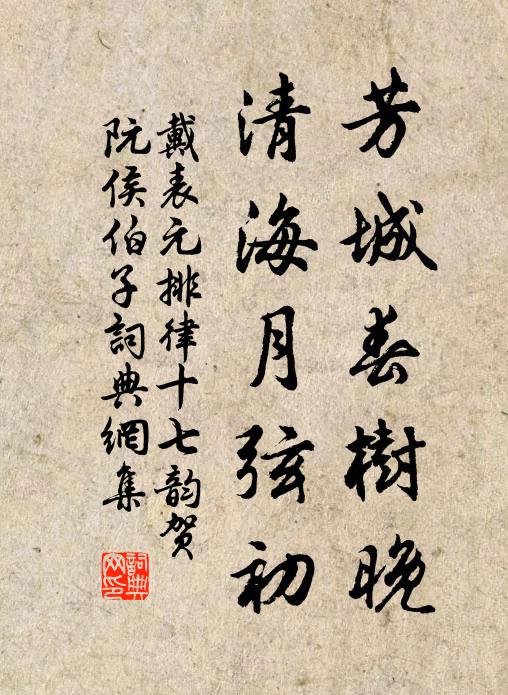 芳城春樹晚
清海月弦初
戴表元排律十七韵贺
阮侯伯子詞典網集
詞典網印